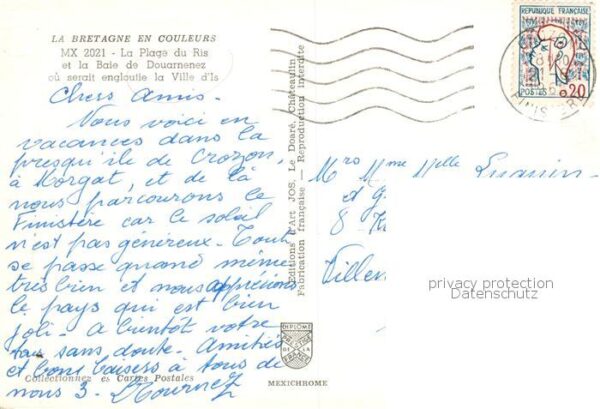 LA BRETAGNE EN COULEURS
MX 2021 - La Plage du Ris
et la Baie de Douarnenez
où serait engloutie la Ville d'Is
Chers Amis.
Nous voici en
vacances dans la
presqu'ile de Crozon,
à Morgat, et de là
nous parcourons le
Finistère car le soleil
n'est pas généreux. Tout
se passe quand même
très bien et nous apprécions
le pays qui est bien
joli. A bientôt votre
tour sans doute. Amitiés
et bons baisers à tous de
nous 3.
Collectionnez les Cartes Postales
Editions d'Art JOS. Le Doaré, Châteaulin
Fabrication française - Reproduction interdite
DIPLOME
PRESTIGE
DE LA
FRANCE
MEXICHROME
REPUBLIQUE FRANÇAISE
POSTES 0,20
FINISTERE
Mrs Mme Melle
et G
8
Villen
privacy protection
Datenschutz